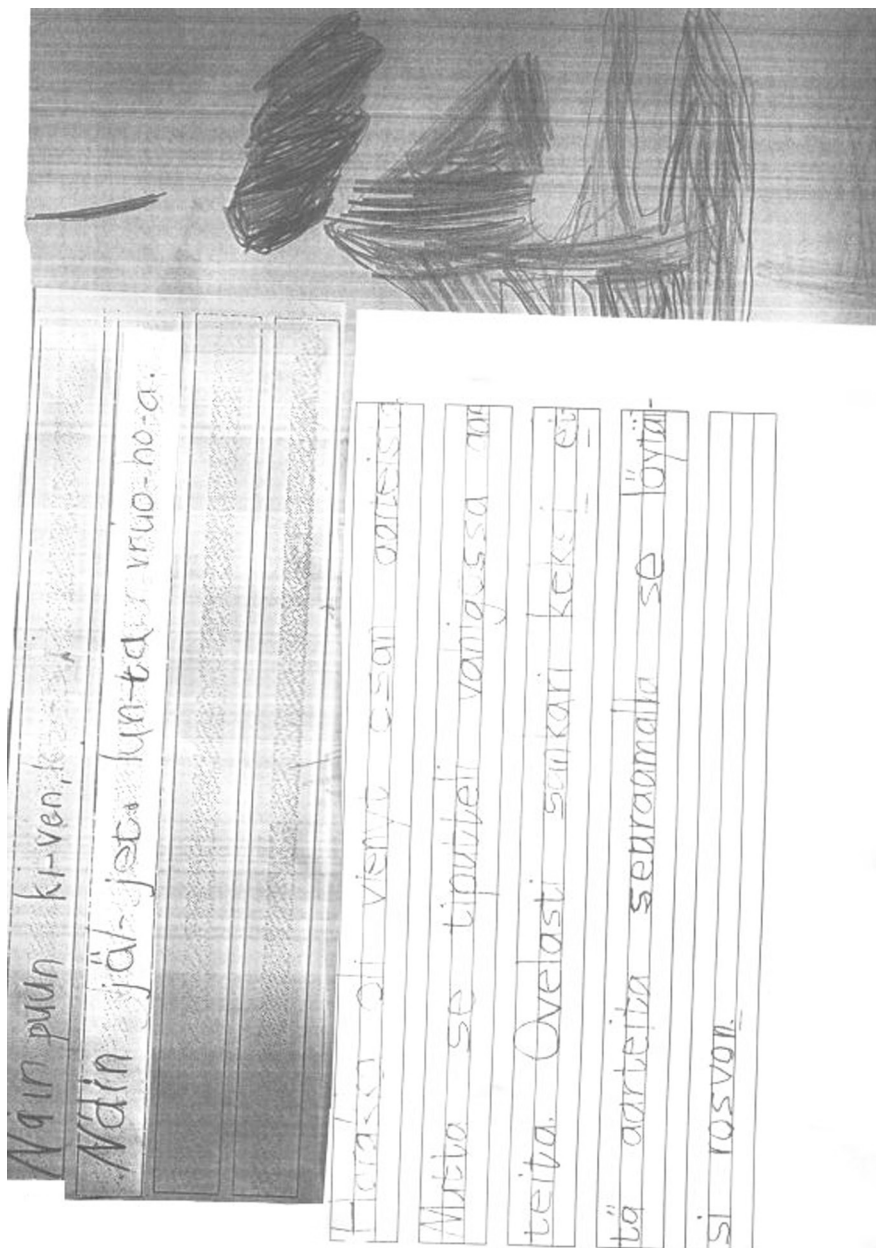 Näin puun ki-ven,
Näin jäl-jet. lun-ta ruo-ho-a.
Harakka oli vienyt osan aarteista
Mutta se tiputteli vahigossa aar
teita. Ovelasti sankari keksi et
tä aarteita seuraamalla se löytäi-
si rosvon.